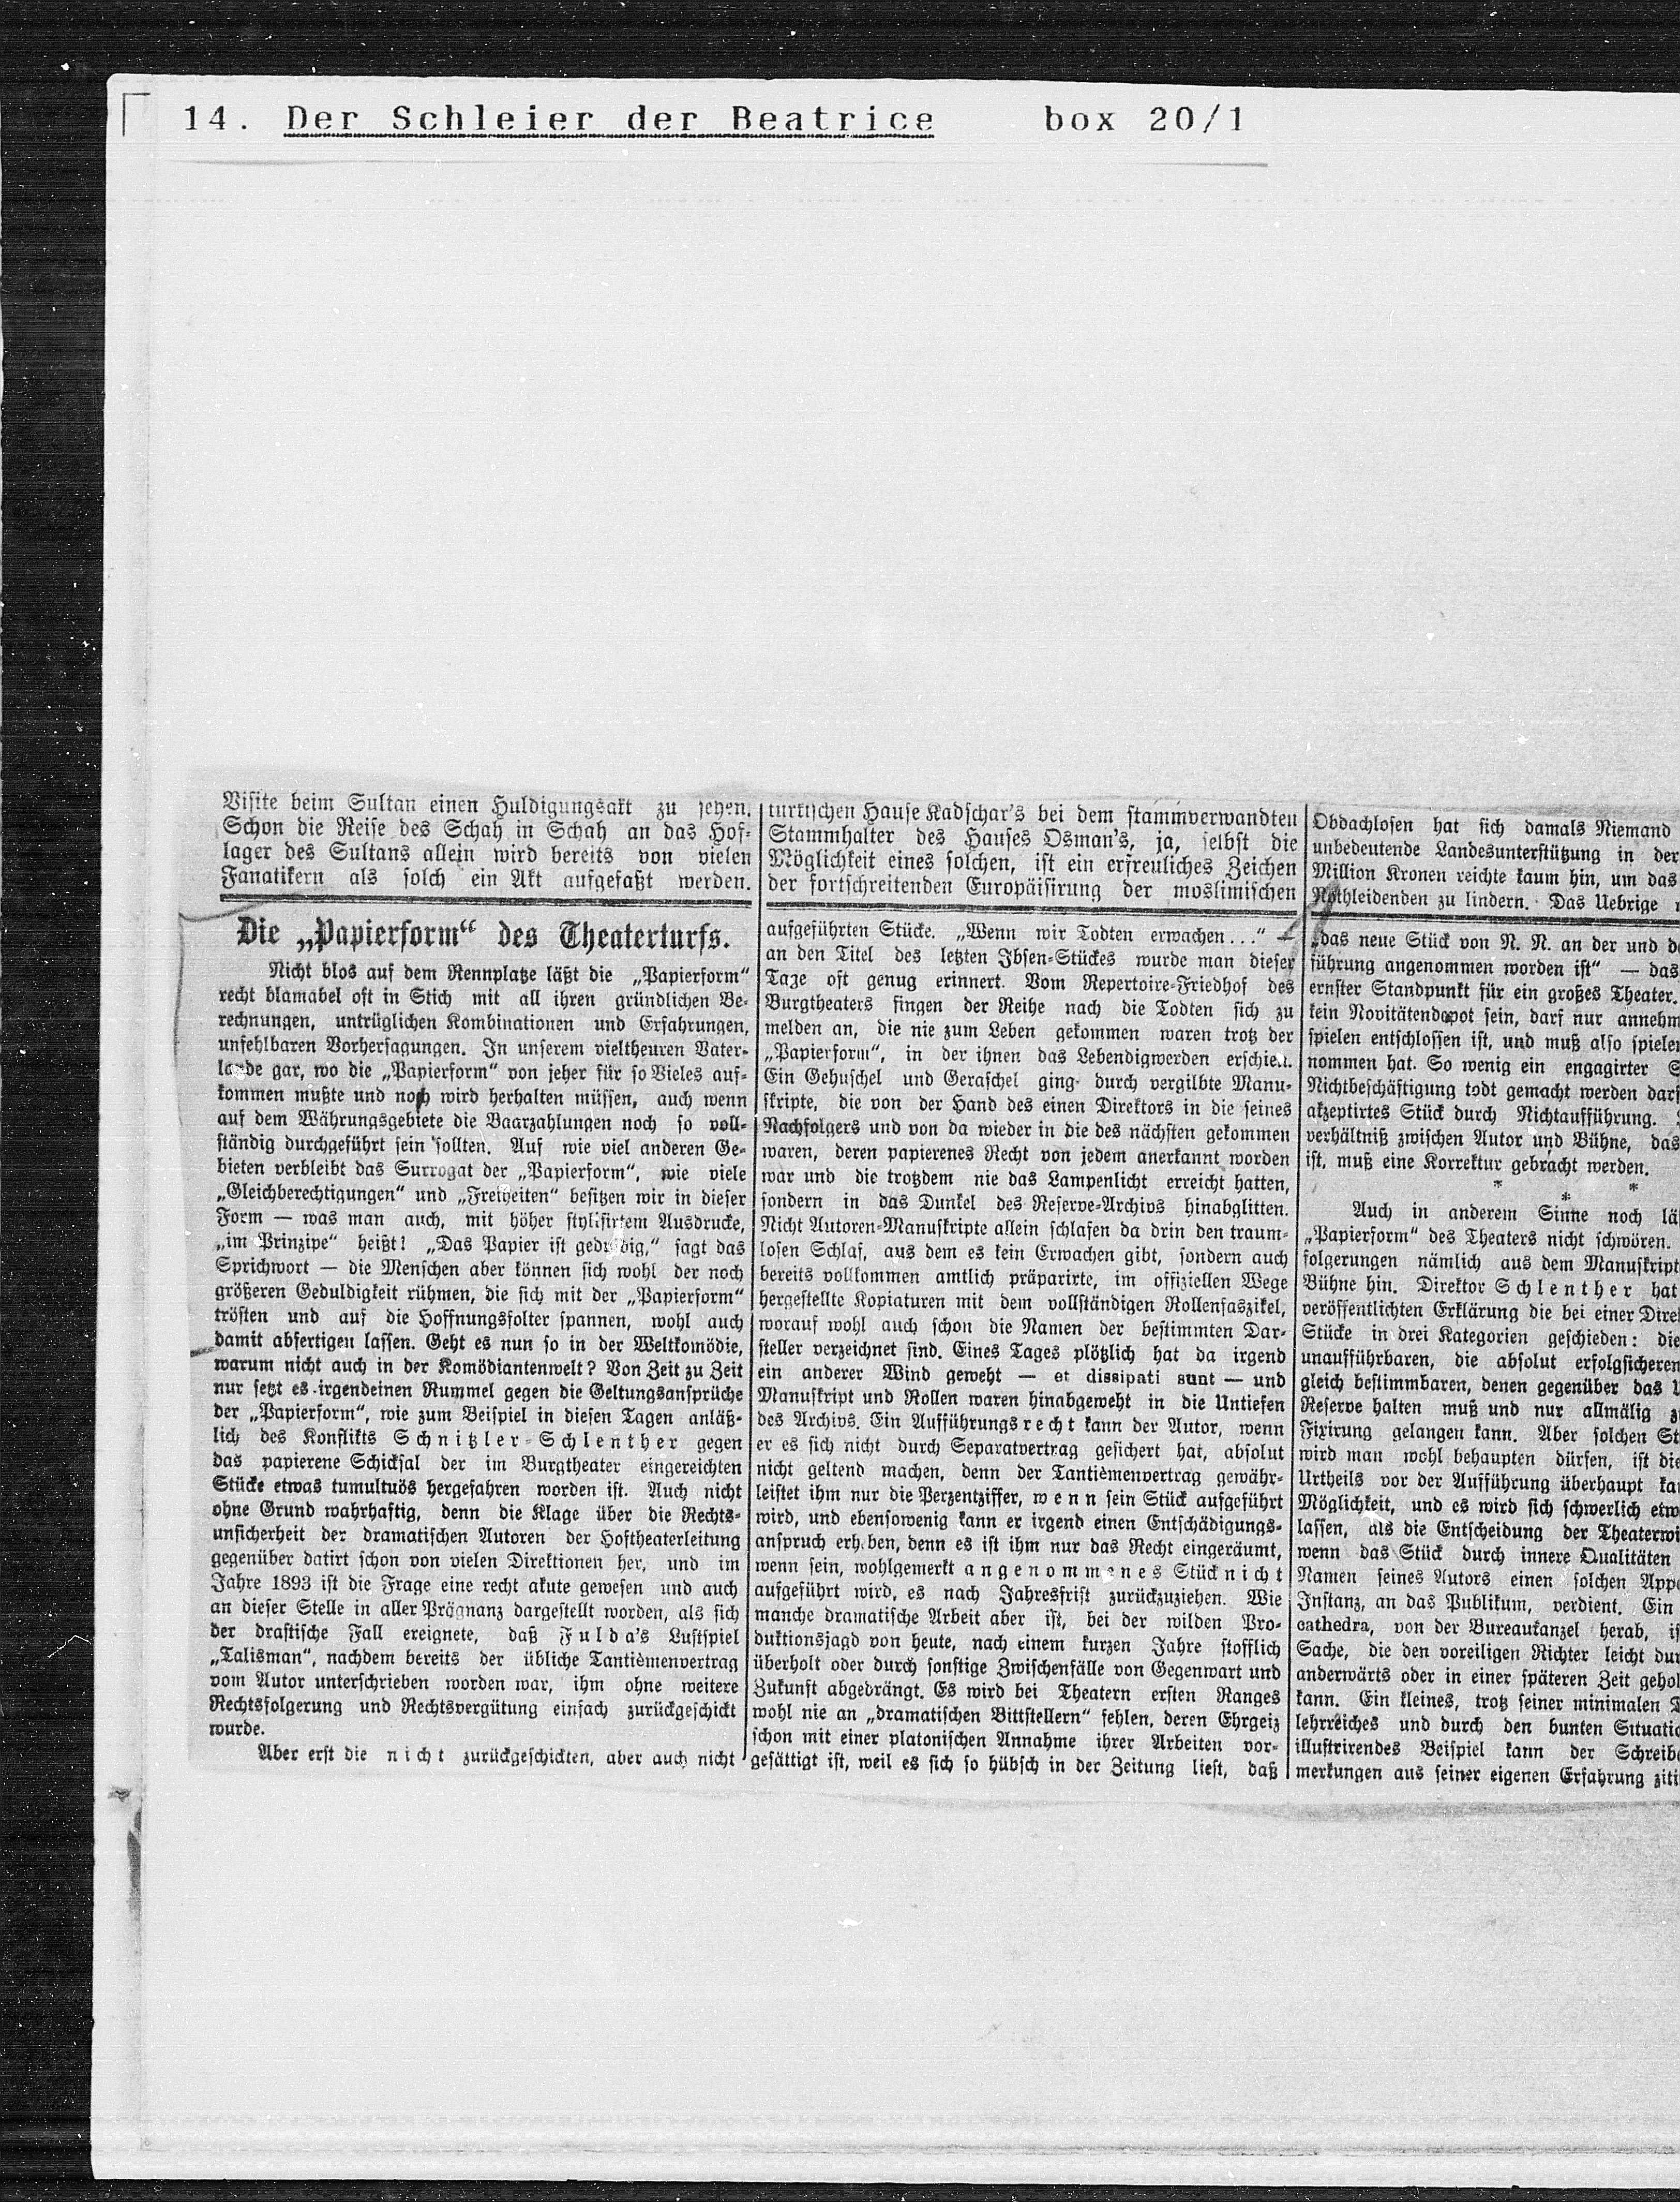 14. Der Schleier der Beatrice box 20/1
Visite beim Sultan einen Huldigungsakt zu sehen.
Schon die Reise des Schah in Schah an das Hof-
lager des Sultans allein wird bereits von vielen
Fanatikern als solch ein Akt aufgefaßt werden.
Die „Papierform“ des Theaterturfs.
Nicht blos auf dem Rennplatze läßt die „Papierform“
recht blamabel oft in Stich mit all ihren gründlichen Be-
rechnungen, untrüglichen Kombinationen und Erfahrungen,
unfehlbaren Vorhersagungen. In unserem vieltheuren Vater-
lande gar, wo die „Papierform“ von jeher für so Vieles auf-
kommen mußte und noch wird herhalten müssen, auch wenn
auf dem Währungsgebiete die Baarzahlungen noch so voll-
ständig durchgeführt sein sollten. Auf wie viel anderen Ge-
bieten verbleibt das Surrogat der „Papierform“, wie viele
„Gleichberechtigungen“ und „Freiheiten“ besitzen wir in dieser
Form — was man auch, mit höher stylisirtem Ausdrucke,
„im Prinzipe“ heißt! „Das Papier ist geduldig,“ sagt das
Sprichwort — die Menschen aber können sich wohl der noch
größeren Geduldigkeit rühmen, die sich mit der „Papierform“
trösten und auf die Hoffnungsfolter spannen, wohl auch
damit abfertigen lassen. Geht es nun so in der Weltkomödie,
warum nicht auch in der Komödiantenwelt? Von Zeit zu Zeit
nur setzt es irgendeinen Rummel gegen die Geltungsansprüche
der „Papierform“, wie zum Beispiel in diesen Tagen anläß-
lich des Konflikts Schnitzler-Schlenther gegen
das papierene Schicksal der im Burgtheater eingereichten
Stücke etwas tumultuös hergefahren worden ist. Auch nicht
ohne Grund wahrhaftig, denn die Klage über die Rechts-
unsicherheit der dramatischen Autoren der Hoftheaterleitung
gegenüber datirt schon von vielen Direktionen her, und im
Jahre 1893 ist die Frage eine recht akute gewesen und auch
an dieser Stelle in aller Prägnanz dargestellt worden, als sich
der drastische Fall ereignete, daß Fulda's Lustspiel
„Talisman“, nachdem bereits der übliche Tantièmenvertrag
vom Autor unterschrieben worden war, ihm ohne weitere
Rechtsfolgerung und Rechtsvergütung einfach zurückgeschickt
wurde.
Aber erst die nicht zurückgeschickten, aber auch nicht
türkischen Hause Kadschar's bei dem stammverwandten
Stammhalter des Hauses Osman's, ja, selbst die
Möglichkeit eines solchen, ist ein erfreuliches Zeichen
der fortschreitenden Europäisirung der moslimischen
aufgeführten Stücke. „Wenn wir Todten erwachen...“ —
an den Titel des letzten Ibsen-Stückes wurde man dieser
Tage oft genug erinnert. Vom Repertoire-Friedhof des
Burgtheaters fingen der Reihe nach die Todten sich zu
melden an, die nie zum Leben gekommen waren trotz der
„Papierform“, in der ihnen das Lebendigwerden erschien.
Ein Gehuschel und Geraschel ging durch vergilbte Manu-
skripte, die von der Hand des einen Direktors in die seines
Nachfolgers und von da wieder in die des nächsten gekommen
waren, deren papierenes Recht von jedem anerkannt worden
war und die trotzdem nie das Lampenlicht erreicht hatten,
sondern in das Dunkel des Reserve-Archivs hinabglitten.
Nicht Autoren-Manuskripte allein schlafen da drin den traum-
losen Schlaf, aus dem es kein Erwachen gibt, sondern auch
bereits vollkommen amtlich präparirte, im offiziellen Wege
hergestellte Kopiaturen mit dem vollständigen Rollenfaszikel,
worauf wohl auch schon die Namen der bestimmten Dar-
steller verzeichnet sind. Eines Tages plötzlich hat da irgend
ein anderer Wind geweht — et dissipati sunt — und
Manuskript und Rollen waren hinabgeweht in die Untiefen
des Archivs. Ein Aufführungsrecht kann der Autor, wenn
er es sich nicht durch Separatvertrag gesichert hat, absolut
nicht geltend machen, denn der Tantièmenvertrag gewähr-
leistet ihm nur die Perzentziffer, wenn sein Stück aufgeführt
wird, und ebensowenig kann er irgend einen Entschädigungs-
anspruch erheben, denn es ist ihm nur das Recht eingeräumt,
wenn sein, wohlgemerkt angenommenes Stück nicht
aufgeführt wird, es nach Jahresfrist zurückzuziehen. Wie
manche dramatische Arbeit aber ist, bei der wilden Pro-
duktionsjagd von heute, nach einem kurzen Jahre stofflich
überholt oder durch sonstige Zwischenfälle von Gegenwart und
Zukunft abgedrängt. Es wird bei Theatern ersten Ranges
wohl nie an „dramatischen Bittstellern“ fehlen, deren Ehrgeiz
schon mit einer platonischen Annahme ihrer Arbeiten vor-
gesättigt ist, weil es sich so hübsch in der Zeitung liest, daß
Obdachlosen hat sich damals Niemand
unbedeutende Landesunterstützung in der
Million Kronen reichte kaum hin, um das
Nothleidenden zu lindern. Das Uebrige
„das neue Stück von N. N. an der und d
führung angenommen worden ist“ — das
ernster Standpunkt für ein großes Theater.
kein Novitätendepot sein, darf nur annehm
spielen entschlossen ist, und muß also spiele
nommen hat. So wenig ein engagirter S
Nichtbeschäftigung todt gemacht werden darf
akzeptirtes Stück durch Nichtaufführung.
verhältniß zwischen Autor und Bühne, das
ist, muß eine Korrektur gebracht werden.
* * *
Auch in anderem Sinne noch lä
„Papierform“ des Theaters nicht schwören.
folgerungen nämlich aus dem Manuskript
Bühne hin. Direktor Schlenther hat
veröffentlichten Erklärung die bei einer Dire
Stücke in drei Kategorien geschieden: die
unaufführbaren, die absolut erfolgsicheren
gleich bestimmbaren, denen gegenüber das U
Reserve halten muß und nur allmälig z
Fixirung gelangen kann. Aber solchen St
wird man wohl behaupten dürfen, ist die
Urtheils vor der Aufführung überhaupt ka
Möglichkeit, und es wird sich schwerlich etw
lassen, als die Entscheidung der Theaterwi
wenn das Stück durch innere Qualitäten
Namen seines Autors einen solchen Appe
Instanz, an das Publikum, verdient. Ein
cathedra, von der Bureaukanzel herab, is
Sache, die den voreiligen Richter leicht dur
anderwärts oder in einer späteren Zeit gehol
kann. Ein kleines, trotz seiner minimalen
lehrreiches und durch den bunten Situatio
illustrirendes Beispiel kann der Schreibe
merkungen aus seiner eigenen Erfahrung ziti